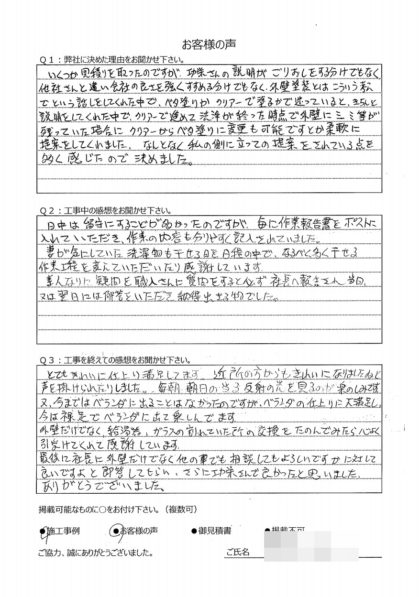 お客様の声
Q1：弊社に決めた理由をお聞かせ下さい。
いくつか見積りを取ったのですが、功栄さんの説明がごりおしをする分けでなく
他社さんと違い会社の良さを強くすすめる分けでもなく、外壁塗装とはこういう私
でという話しをしてくれた中で、ベタ塗りかクリアーで塗るかで迷っていると、きちんと
説明をしてくれた中で、クリアーで進めて洗浄が終った時点で外壁にシミ等が
残っていた場合にクリアーからベタ塗りに変更も可能ですとか柔軟に
提案をしてくれました。なんとなく私の側に立っての提案をされている点を
多く感じたので決めました。
Q2：工事中の感想をお聞かせ下さい。
日中は留守にすることが多かったのですが、毎に作業報告書をポストに
入れていただき、作業の内容も分りやすく記入されていました。
妻が気にしていた洗濯物も干せる日を日程の中で、なるべく多く干せる
作業工程を立んていただいたり感謝しています。
素人なりに疑問を職人さんに質問をすると必ず社長へ報告され、当日
又は翌日には解答をいただいて納得出来る物でした。
Q3：工事を終えての感想をお聞かせ下さい。
とてもきれいに仕上り満足してます。近所の方からもきれいになりましたねと
声を掛けられたりしました。毎朝朝日の当る反射の光を見るのが楽しみです
又、今まではベランダに出ることはなかったのですが、ベランダの仕上りに大満足し
今は裸足でベランダに出て楽しんでます。
外壁だけでなく、給湯器、ガラスの割れていた所の交換をたのんでみたら心よく
引受けてくれて感謝しています。
最後に社長に外壁だけでなく他の事でも相談してもよろしいですかに対して
良いですよと即答してもらい、さらに功栄さんで良かったと思いました。
ありがとうございました。
掲載可能なものに〇をお付け下さい。（複数可）
●施工事例 ●お客様の声 ●御見積書 ●掲載不可
ご協力、誠にありがとうございました。 ご氏名